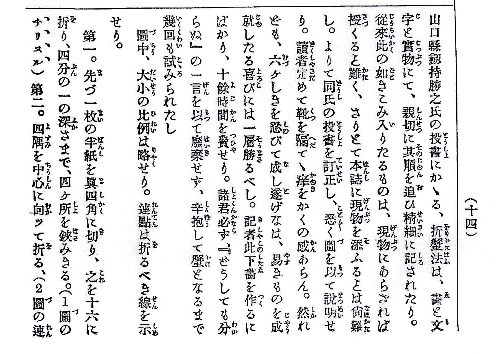 (十四)
山口縣劒持勝之氏の投書にかゝる、折蟹法は、畵と文
字と實物にて、親切に其順を追ひ精細に記されたり。
從來此の如きこみ入りたるものは、現物にあらざれば
授くると難く、さりとて本誌に現物を添ふるとは尙難
し。よりて同氏の投書を訂正し、悉く圖を以て說明せ
り。讀者定めて靴を隔てゝ痒をかくの感あらん。然れ
ども、六ケしきを忍びて成し遂げなば、易きものを成
就したる喜びには一層勝るべし。記者此下畵を作るに
ばかり、十餘時間を費せり。諸君必ず『どうしても分
らぬ』の一言を以て廢棄せず、辛抱して蟹となるまで
幾回も試みられたし
圖中、大小の比例は略せり。連點は折るべき線を示
せり。
第一。先づ一枚の半紙を眞四角に切り、之を十六に
折り、四分の一の深さまで、四ケ所を鋏みきる。(1圖の
ナリスル)第二。四隅を中心に向ツて折る、(2圖の連